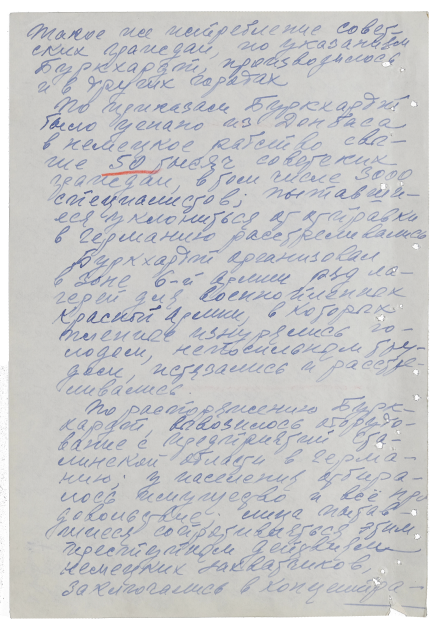 Такое же истребление совет-
ских граждан, по указаниям
Буркхардт, производилось
и в других городах
По приказам Буркхардт
было угнано из Донбаса
в немецкое рабство свы-
ше 50 тысяч советских
граждан, в том числе 3000
специалистов; пытавши-
еся уклониться от отправки
в Германию расстреливались
Буркхардт организовал
в зоне 6-й армии ряд ла-
герей для военнопленных
Красной Армии, в которых
пленные изнурялись го-
лодом, непосильным тру-
дом, истязались и расстре-
ливались.
По распоряжению Бурк-
хардт, вывозилось оборудо-
вание с предприятий Ста-
линской области в Герма-
нию; у населения отбира-
лось имущество и всё про
довольствие. Лица пытав
шиеся сопротивляться этим
преступным действиям
немецких захватчиков,
заключались в концентра-